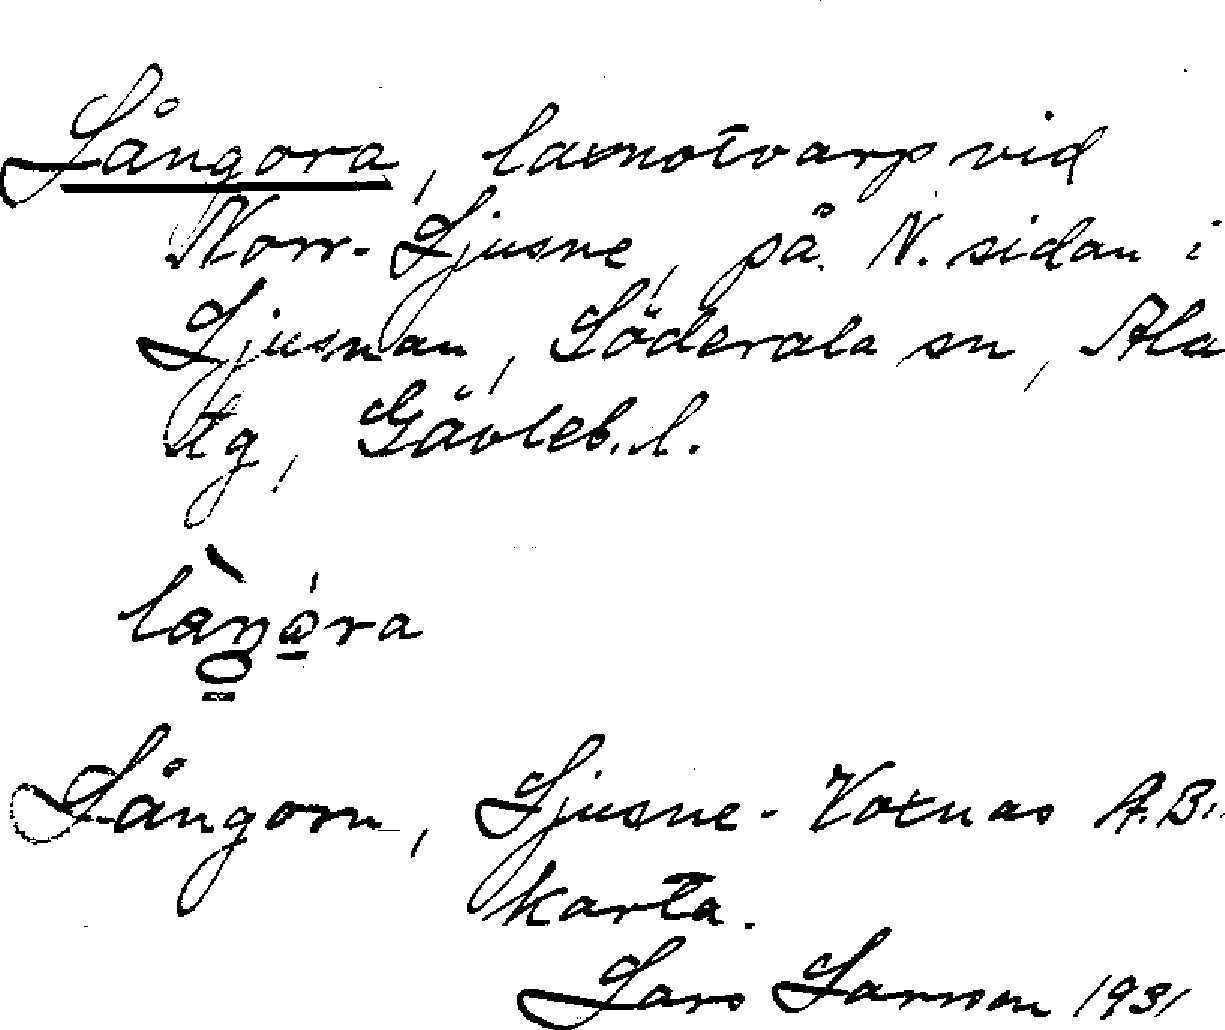 Långora, laxnotvarp vid
Norr-Ljusne, på N. sidan i
Ljusnan, Söderala sn, Ala
tg, Gävleb. l.
Långorn, Ljusne-Voxnas A.B:s
karta.
Lars Larsson 1931